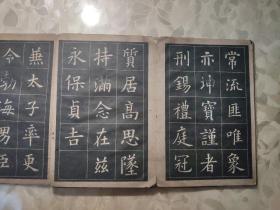 常流匪唯象
亦坤寶謹者
刑錫禮庭冠
質居高思墜
持滿念在茲
永保貞吉
兼太子率更
令勃海男臣